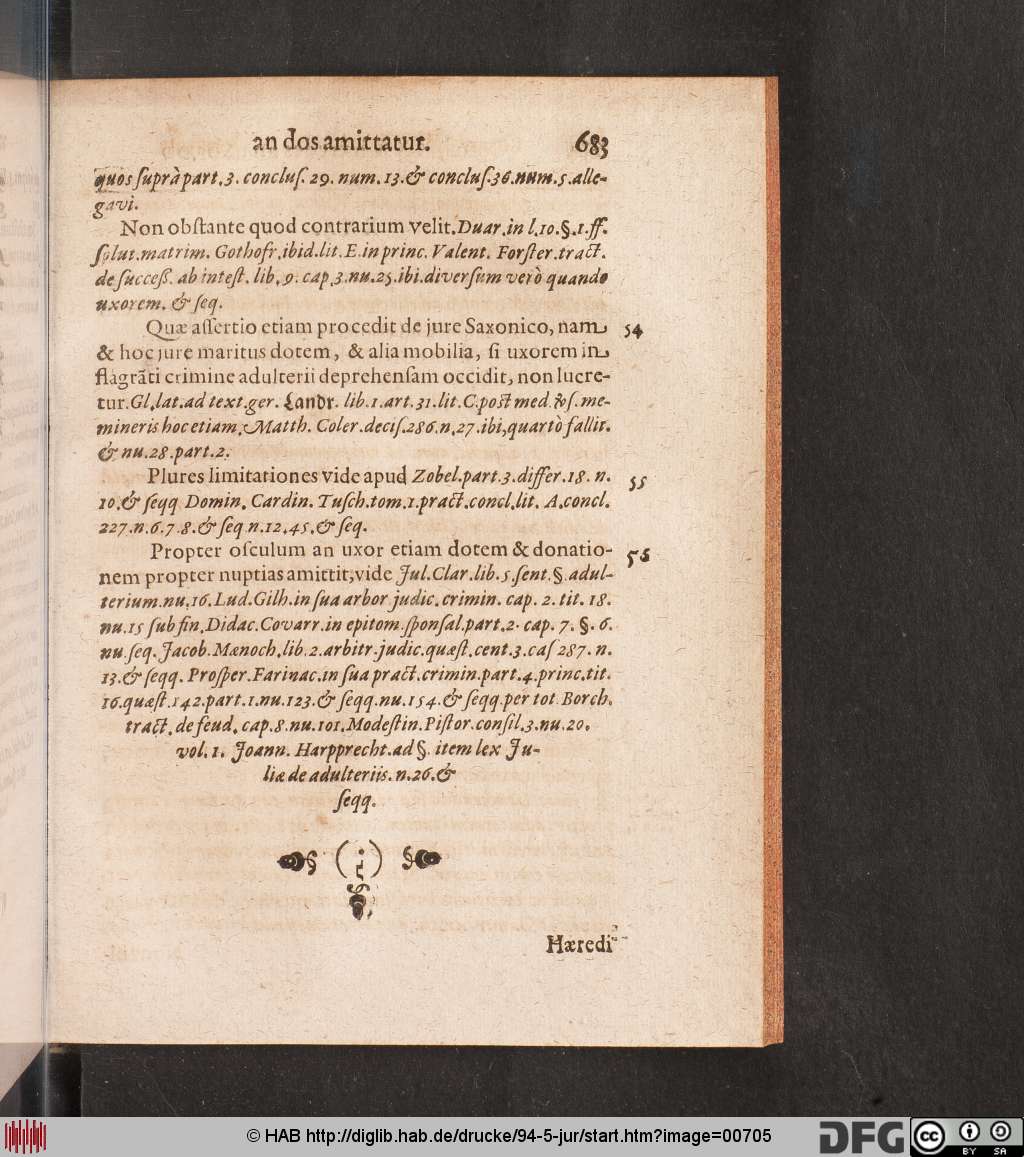 an dos amittatur. 683
quos suprà part. 3. conclus. 29. num. 13. & conclus. 36. num. 5. alle-
gavi.
Non obstante quod contrarium velit. Duar. in l. 10. §. 1. ff.
solut. matrim. Gothofr. ibid. lit. E. in princ. Valent. Forster. tract.
de success. ab intest. lib. 9. cap. 3. nu. 25. ibi. diversum verò quando
uxorem. & seq.
Quæ assertio etiam procedit de jure Saxonico, nam 54
& hoc jure maritus dotem, & alia mobilia, si uxorem in
flagrāti crimine adulterii deprehensam occidit, non lucre-
tur. Gl. lat. ad text. ger. Landr. lib. 1. art. 31. lit. C. post med. vs. me-
mineris hoc etiam. Matth. Coler. decis. 286. n. 27. ibi, quartò fallit.
& nu. 28. part. 2.
Plures limitationes vide apud Zobel. part. 3. differ. 18. n. 55
10. & seqq Domin. Cardin. Tusch. tom. 1. pract. concl. lit. A. concl.
227. n. 6. 7. 8. & seq. n. 12. 45. & seq.
Propter osculum an uxor etiam dotem & donatio- 56
nem propter nuptias amittit, vide Jul. Clar. lib. 5. sent. §. adul-
terium. nu. 16. Lud. Gilh. in sua arbor judic. crimin. cap. 2. tit. 18.
nu. 15 sub fin. Didac. Covarr. in epitom. sponsal. part. 2. cap. 7. §. 6.
nu. seq. Jacob. Mænoch. lib. 2. arbitr. judic. quæst. cent. 3. cas 287. n.
13. & seqq. Prosper. Farinac. in sua pract. crimin. part. 4. princ. tit.
16. quæst. 142. part. 1. nu. 123. & seqq. nu. 154. & seqq. per tot. Borch.
tract. de feud. cap. 8. nu. 101. Modestin. Pistor. consil. 3. nu. 20.
vol. 1. Joann. Harpprecht. ad §. item lex Ju-
liæ de adulteriis. n. 26. &
seqq.
Hæredi-
© HAB http://diglib.hab.de/drucke/94-5-jur/start.htm?image=00705
DFG cc BY SA